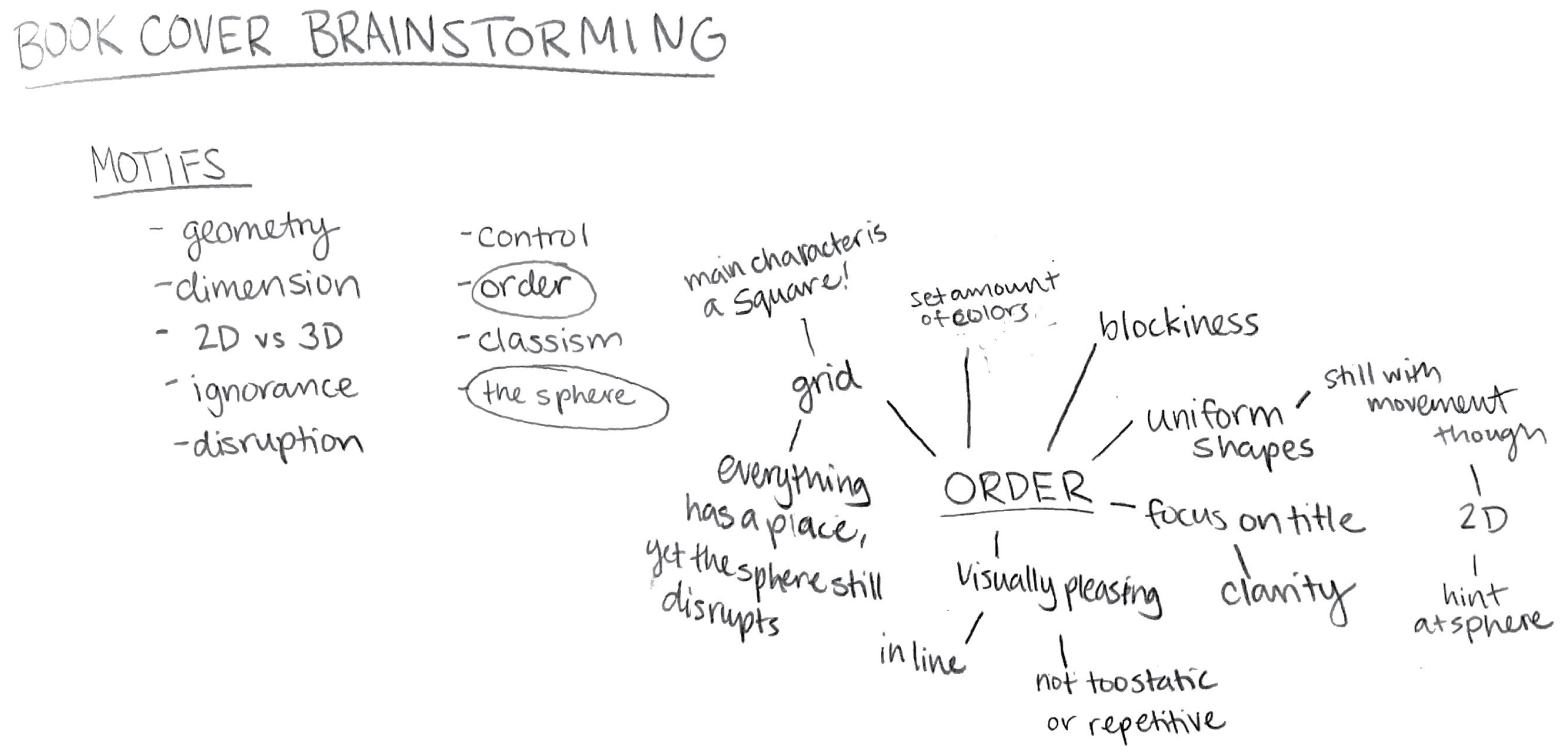 BOOK COVER BRAINSTORMING
MOTIFS
- geometry
- dimension
- 2D vs 3D
- ignorance
- disruption
- control
- order
- classism
- the sphere
main character is
a square!
grid
everything
has a place,
yet the sphere still
disrupts
set amount
of colors
blockiness
uniform
shapes
still with
movement
though
2D
hint
at sphere
ORDER
focus on title
clarity
visually pleasing
in line
not too static
or repetitive